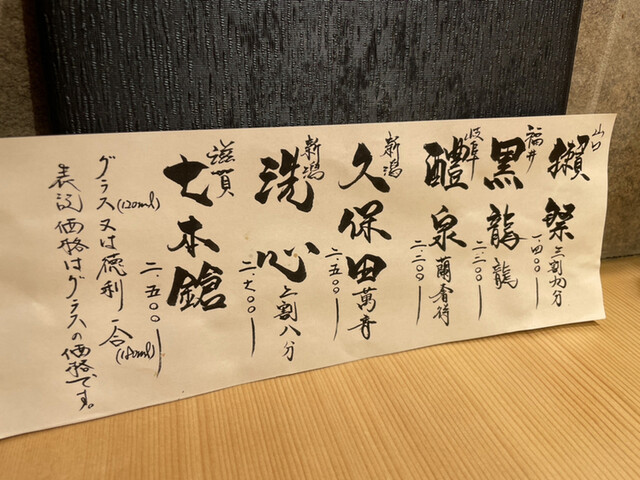 山口
獺祭 三割九分
一.四〇〇
福井
黒龍 龍
二.一〇〇
岐阜
醴泉 蘭奢待
二.二〇〇
新潟
久保田 萬寿
二.五〇〇
新潟
洗心 二割八分
二.七〇〇
滋賀
七本鎗
二.五〇〇
グラス(120ml)又は徳利一合(180ml)
表記価格はグラスの価格です。